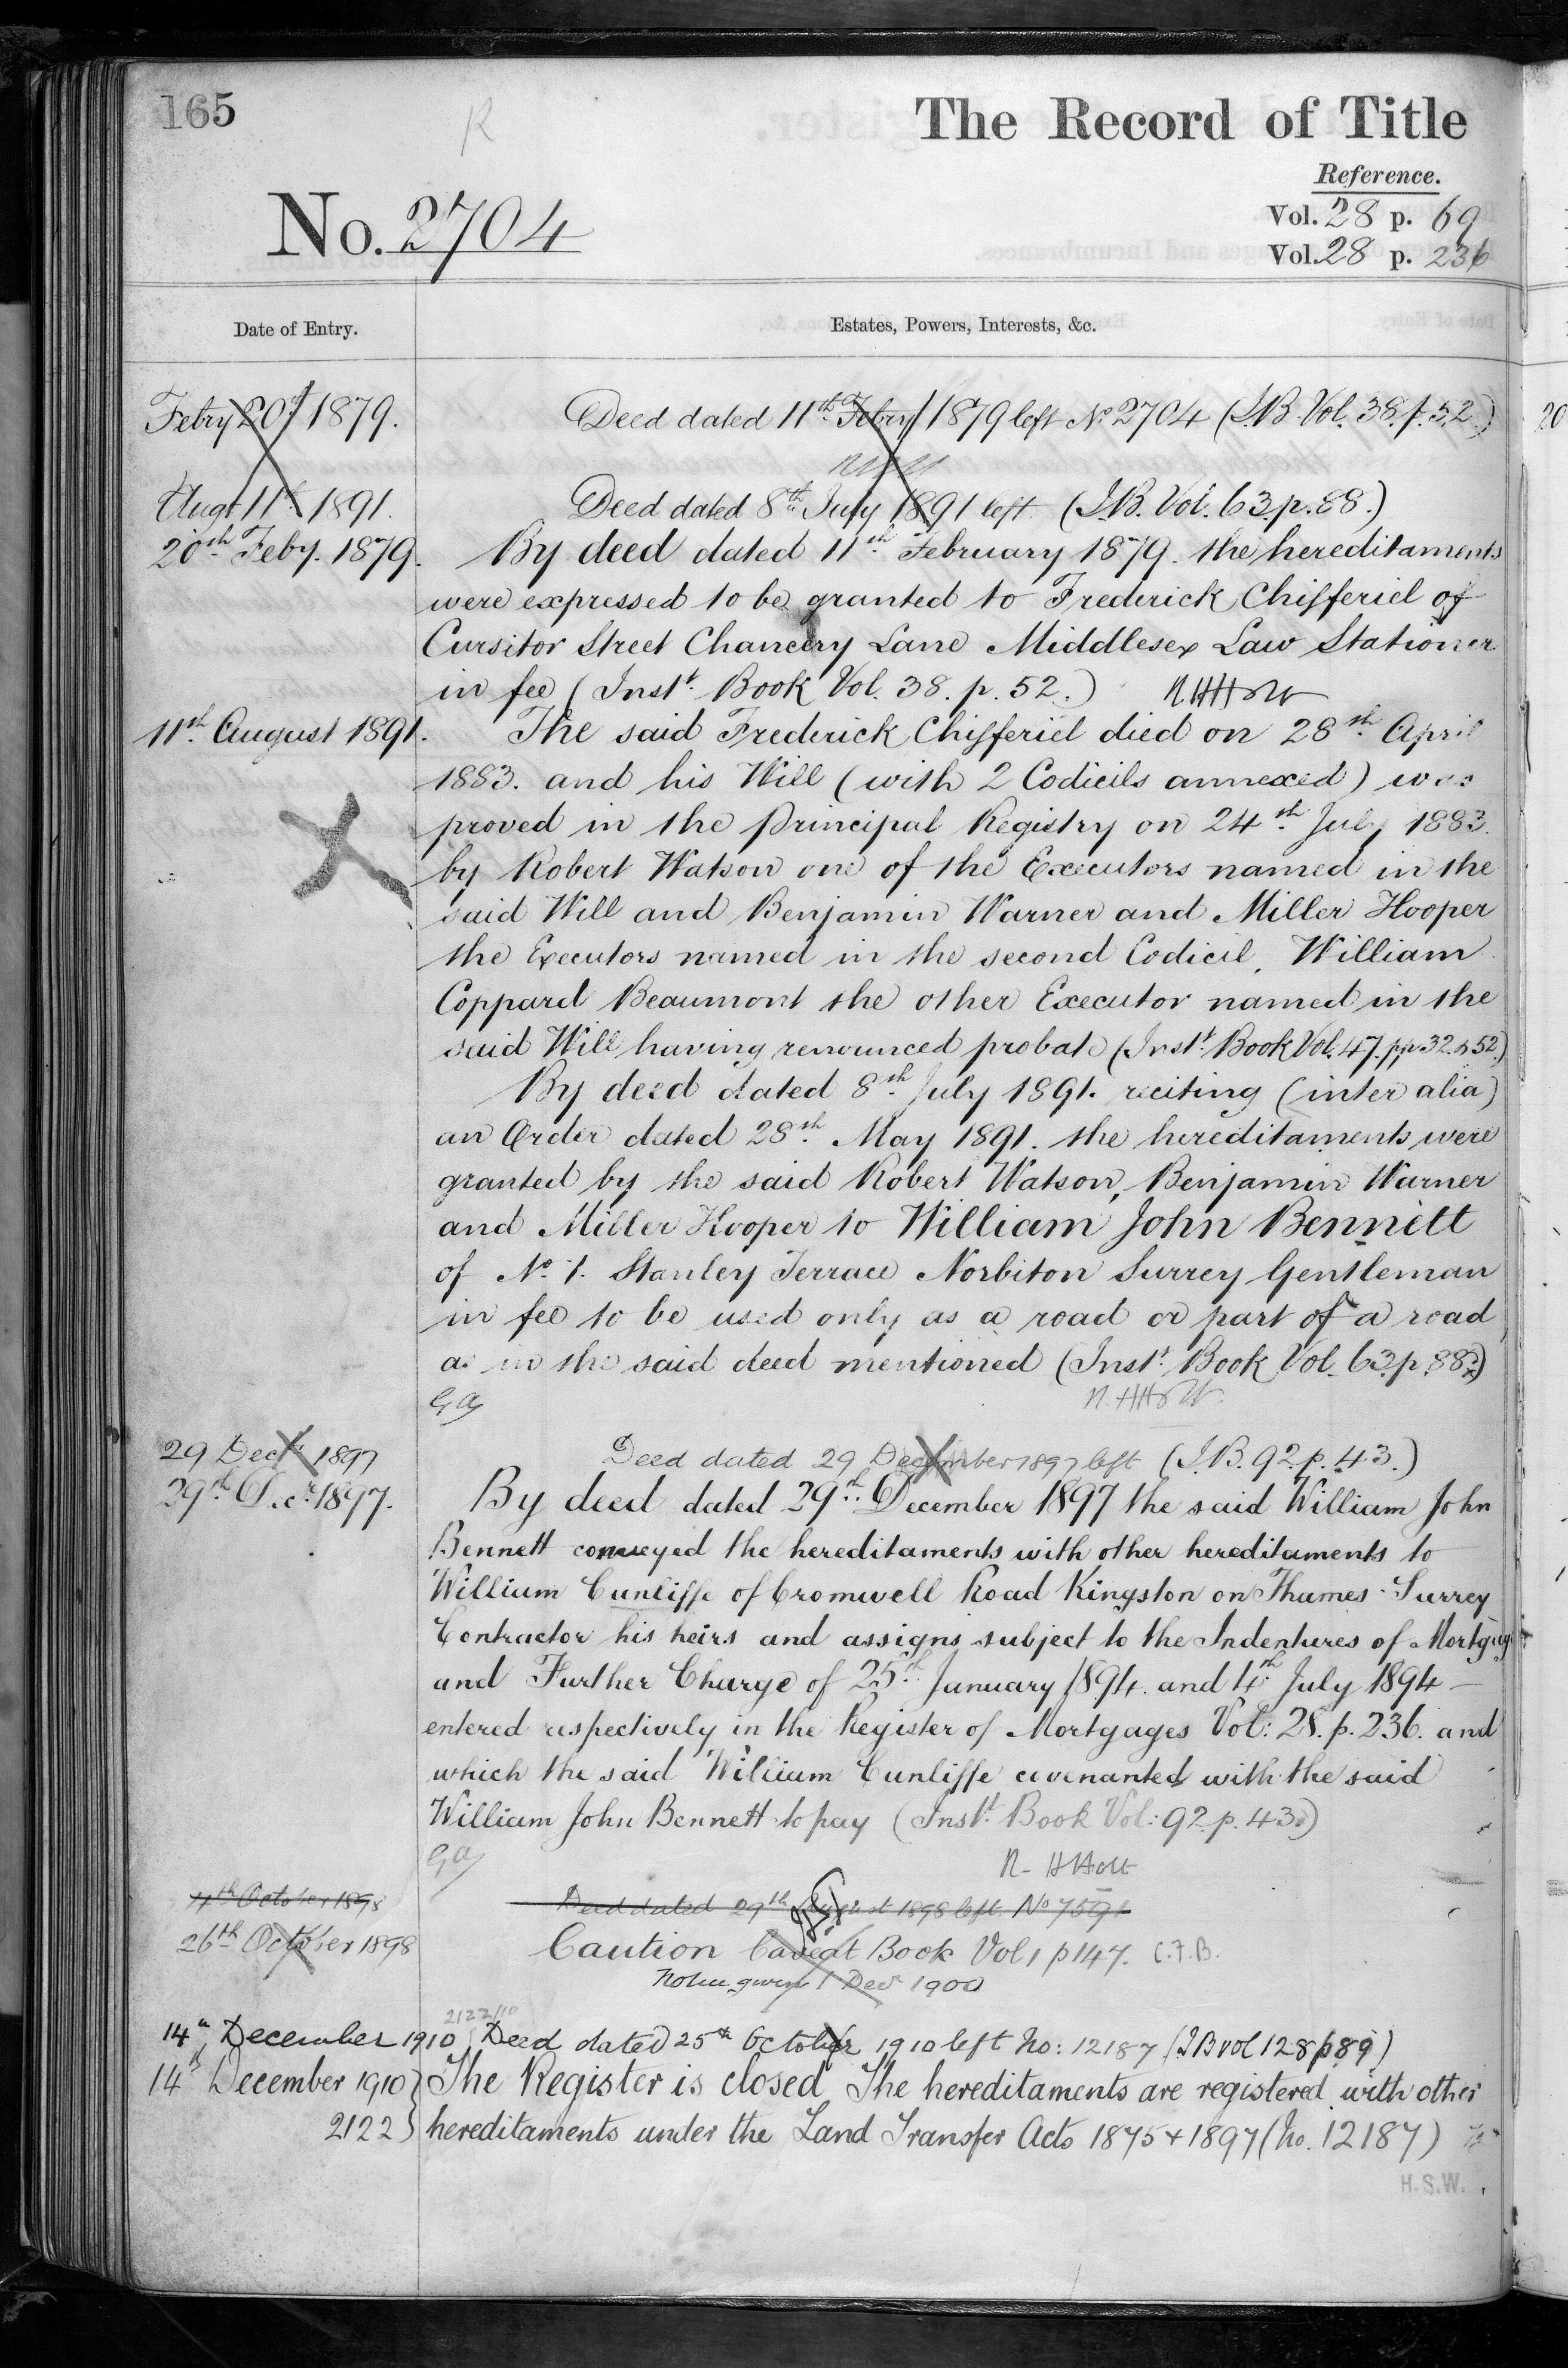 165
R
The Record of Title
Reference.
No. 2704
Vol. 28 p. 69
Vol. 28 p. 236
Date of Entry.
Estates, Powers, Interests, &c.
Febry 20th 1879.
Deed dated 11th Febry 1879 left No 2704 (I.B. Vol. 38. p. 52.)
Augt 11th 1891.
Deed dated 8th July 1891 left (I.B. Vol. 63. p. 88.)
20th Feby. 1879.
By deed dated 11th February 1879. the hereditaments
were expressed to be granted to Frederick Chifferiel of
Cursitor Street Chancery Lane Middlesex Law Stationer
in fee (Instt. Book Vol. 38. p. 52.) N.HHolt
11th August 1891.
The said Frederick Chifferiel died on 28th April
1883. and his Will (with 2 Codicils annexed) was
proved in the Principal Registry on 24th July 1883.
by Robert Watson one of the Executors named in the
said Will and Benjamin Warner and Miller Hooper
the Executors named in the second Codicil, William
Coppard Beaumont the other Executor named in the
said Will having renounced probate (Instt. Book Vol. 47. pp 32. & 52.)
By deed dated 8th July 1891. reciting (inter alia)
an Order dated 28th May 1891. the hereditaments were
granted by the said Robert Watson, Benjamin Warner
and Miller Hooper to William John Bennett
of No. 1. Stanley Terrace Norbiton Surrey Gentleman
in fee to be used only as a road or part of a road
as in the said deed mentioned (Instt. Book Vol. 63. p. 88.)
N.HHolt
29 Decr. 1897
Deed dated 29 December 1897 left (I.B. 92. p. 43.)
29th Decr. 1897.
By deed dated 29th December 1897 the said William John
Bennett conveyed the hereditaments with other hereditaments to
William Cunliffe of Cromwell Road Kingston on Thames Surrey
Contractor his heirs and assigns subject to the Indentures of Mortgage
and Further Charge of 25th January 1894. and 4th July 1894 —
entered respectively in the Register of Mortgages Vol: 28. p. 236. and
which the said William Cunliffe covenanted with the said
William John Bennett to pay (Instt. Book Vol: 92. p. 43.)
N. HHolt
4th October 1898
Deed dated 29th August 1898 left No 7591
26th October 1898
Caution Caveat Book Vol 1 p 147. C.F.B.
Notice given 1 Decr 1900
2122/10
14th December 1910
Deed dated 25th October 1910 left No: 12187 (I B vol 128 p 89)
14th December 1910
The Register is closed The hereditaments are registered with other
2122
hereditaments under the Land Transfer Acts 1875 & 1897 (No. 12187)
H.S.W.